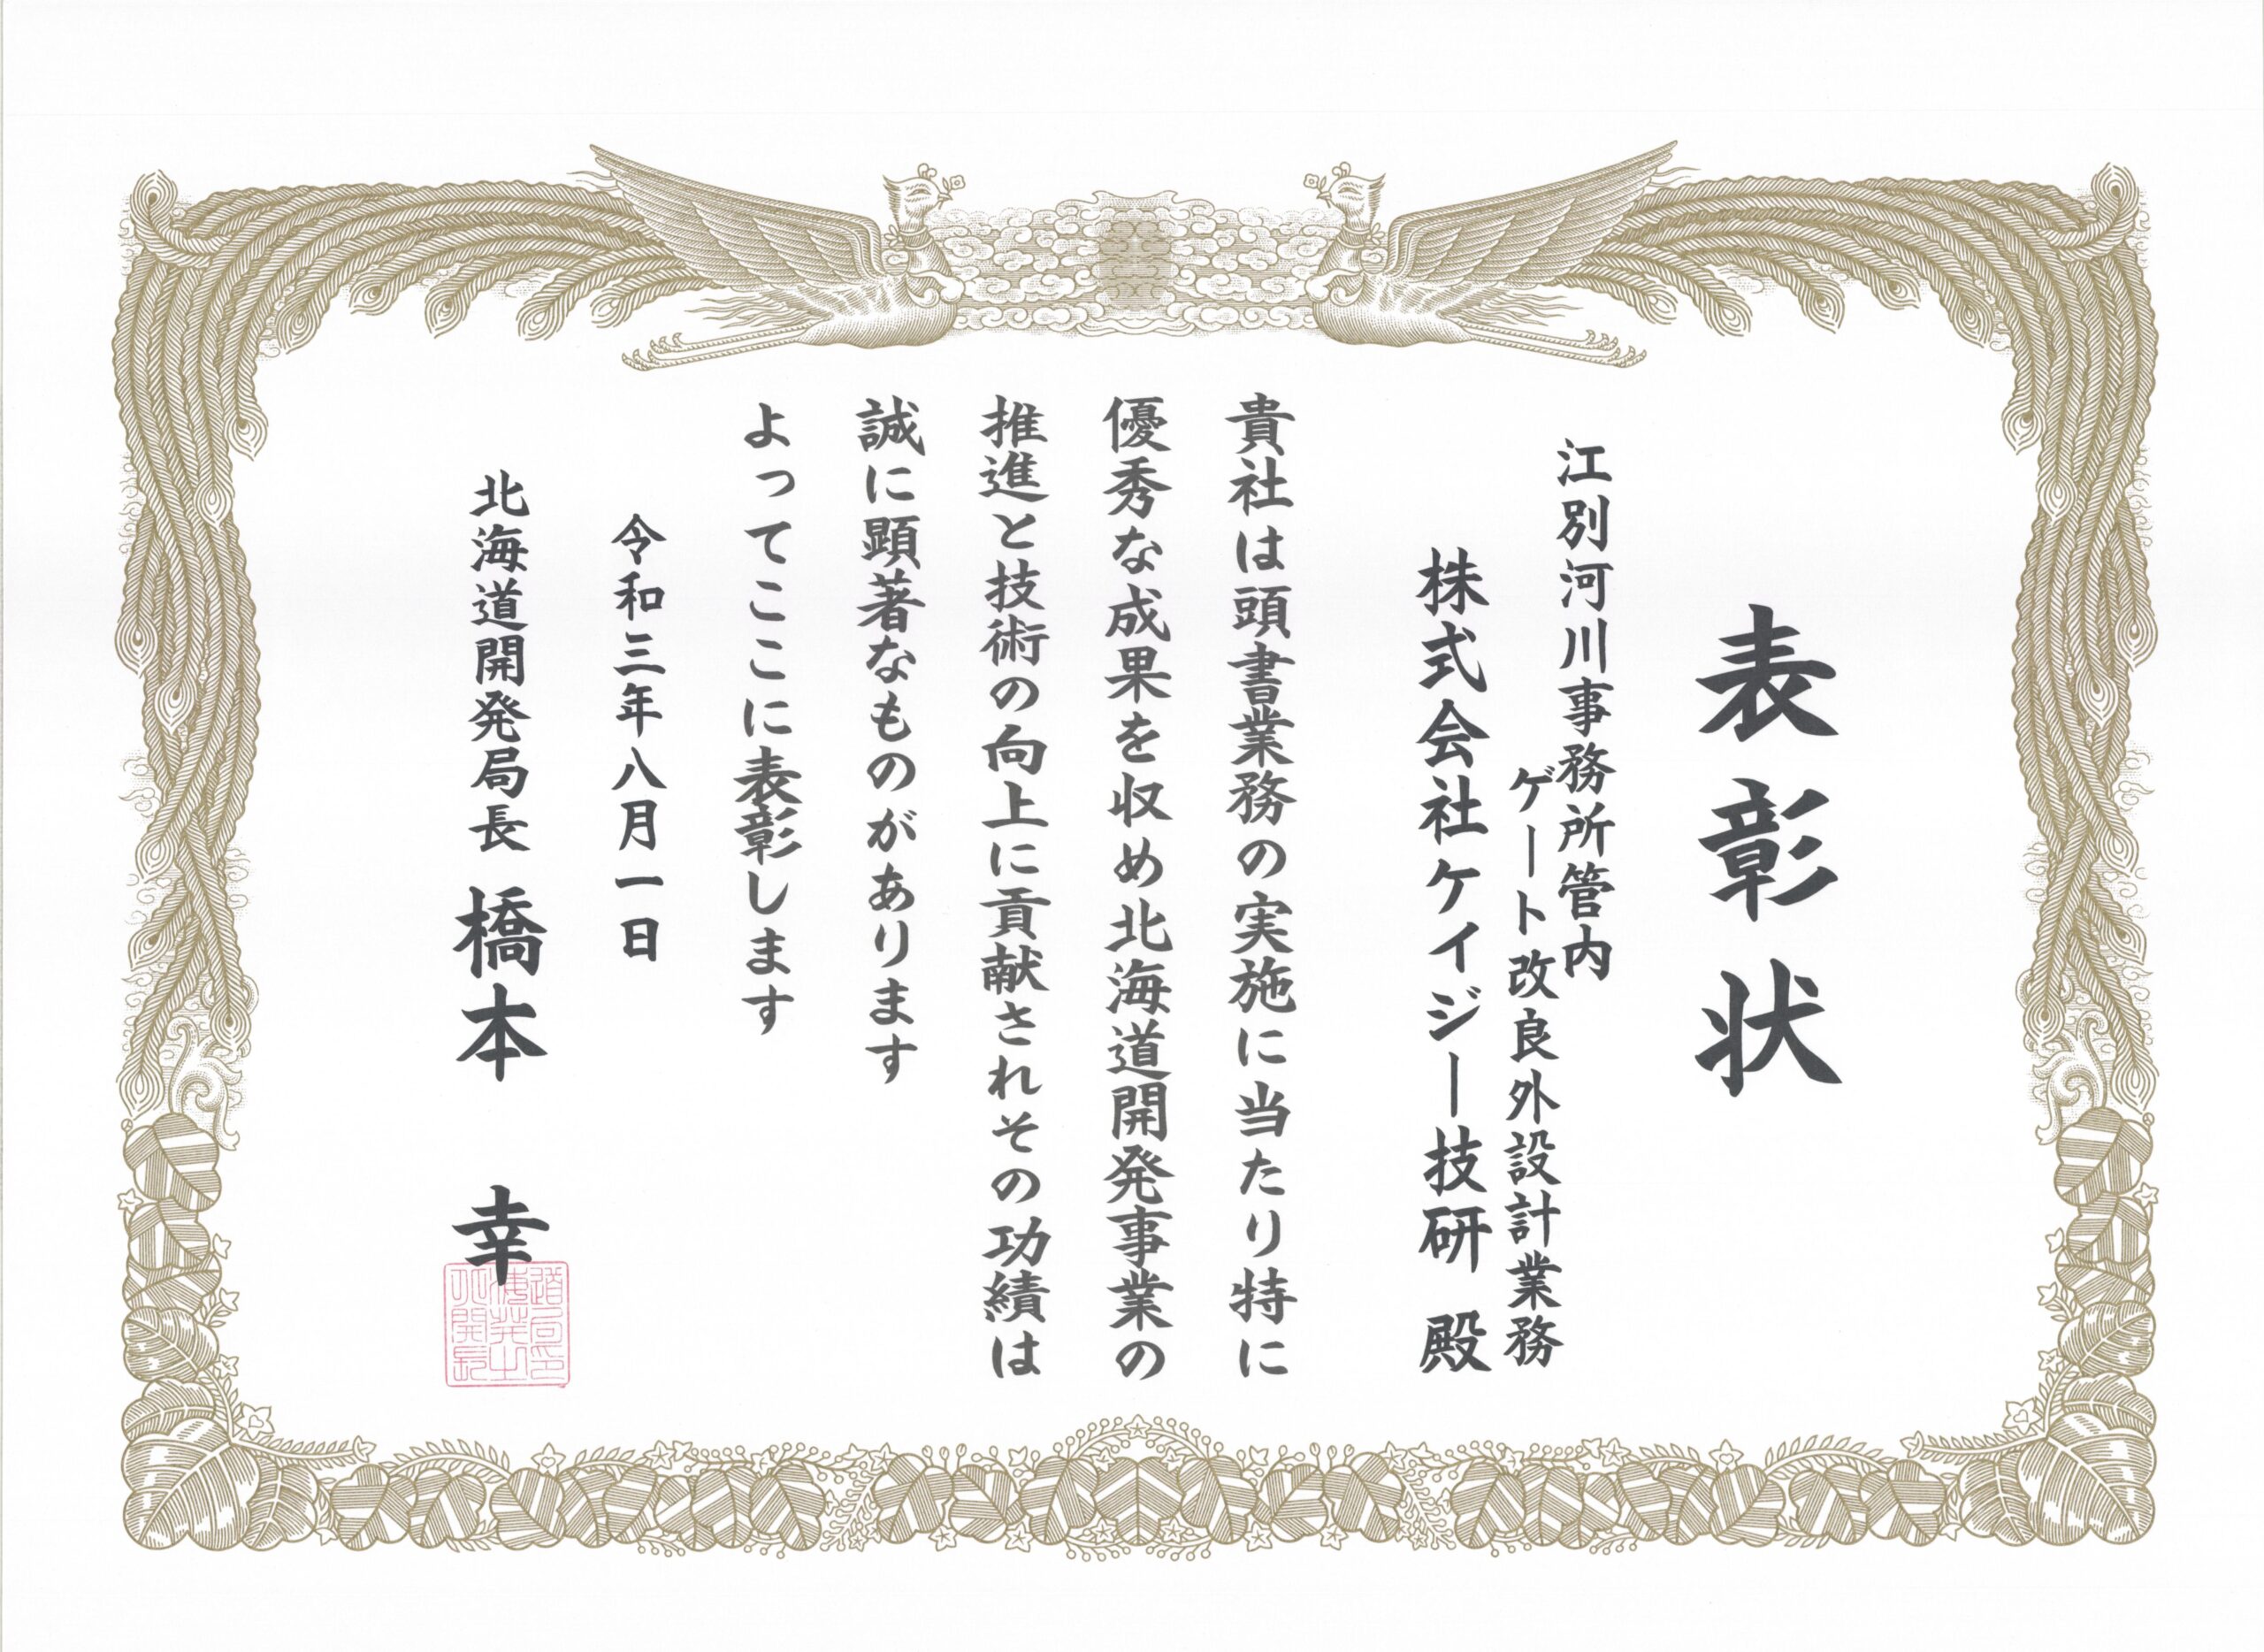 表彰状
江別河川事務所管内
ゲート改良外設計業務
株式会社ケイジー技研 殿
貴社は頭書業務の実施に当たり特に
優秀な成果を収め北海道開発事業の
推進と技術の向上に貢献されその功績は
誠に顕著なものがあります
よってここに表彰します
令和三年八月一日
北海道開発局長 橋本 幸